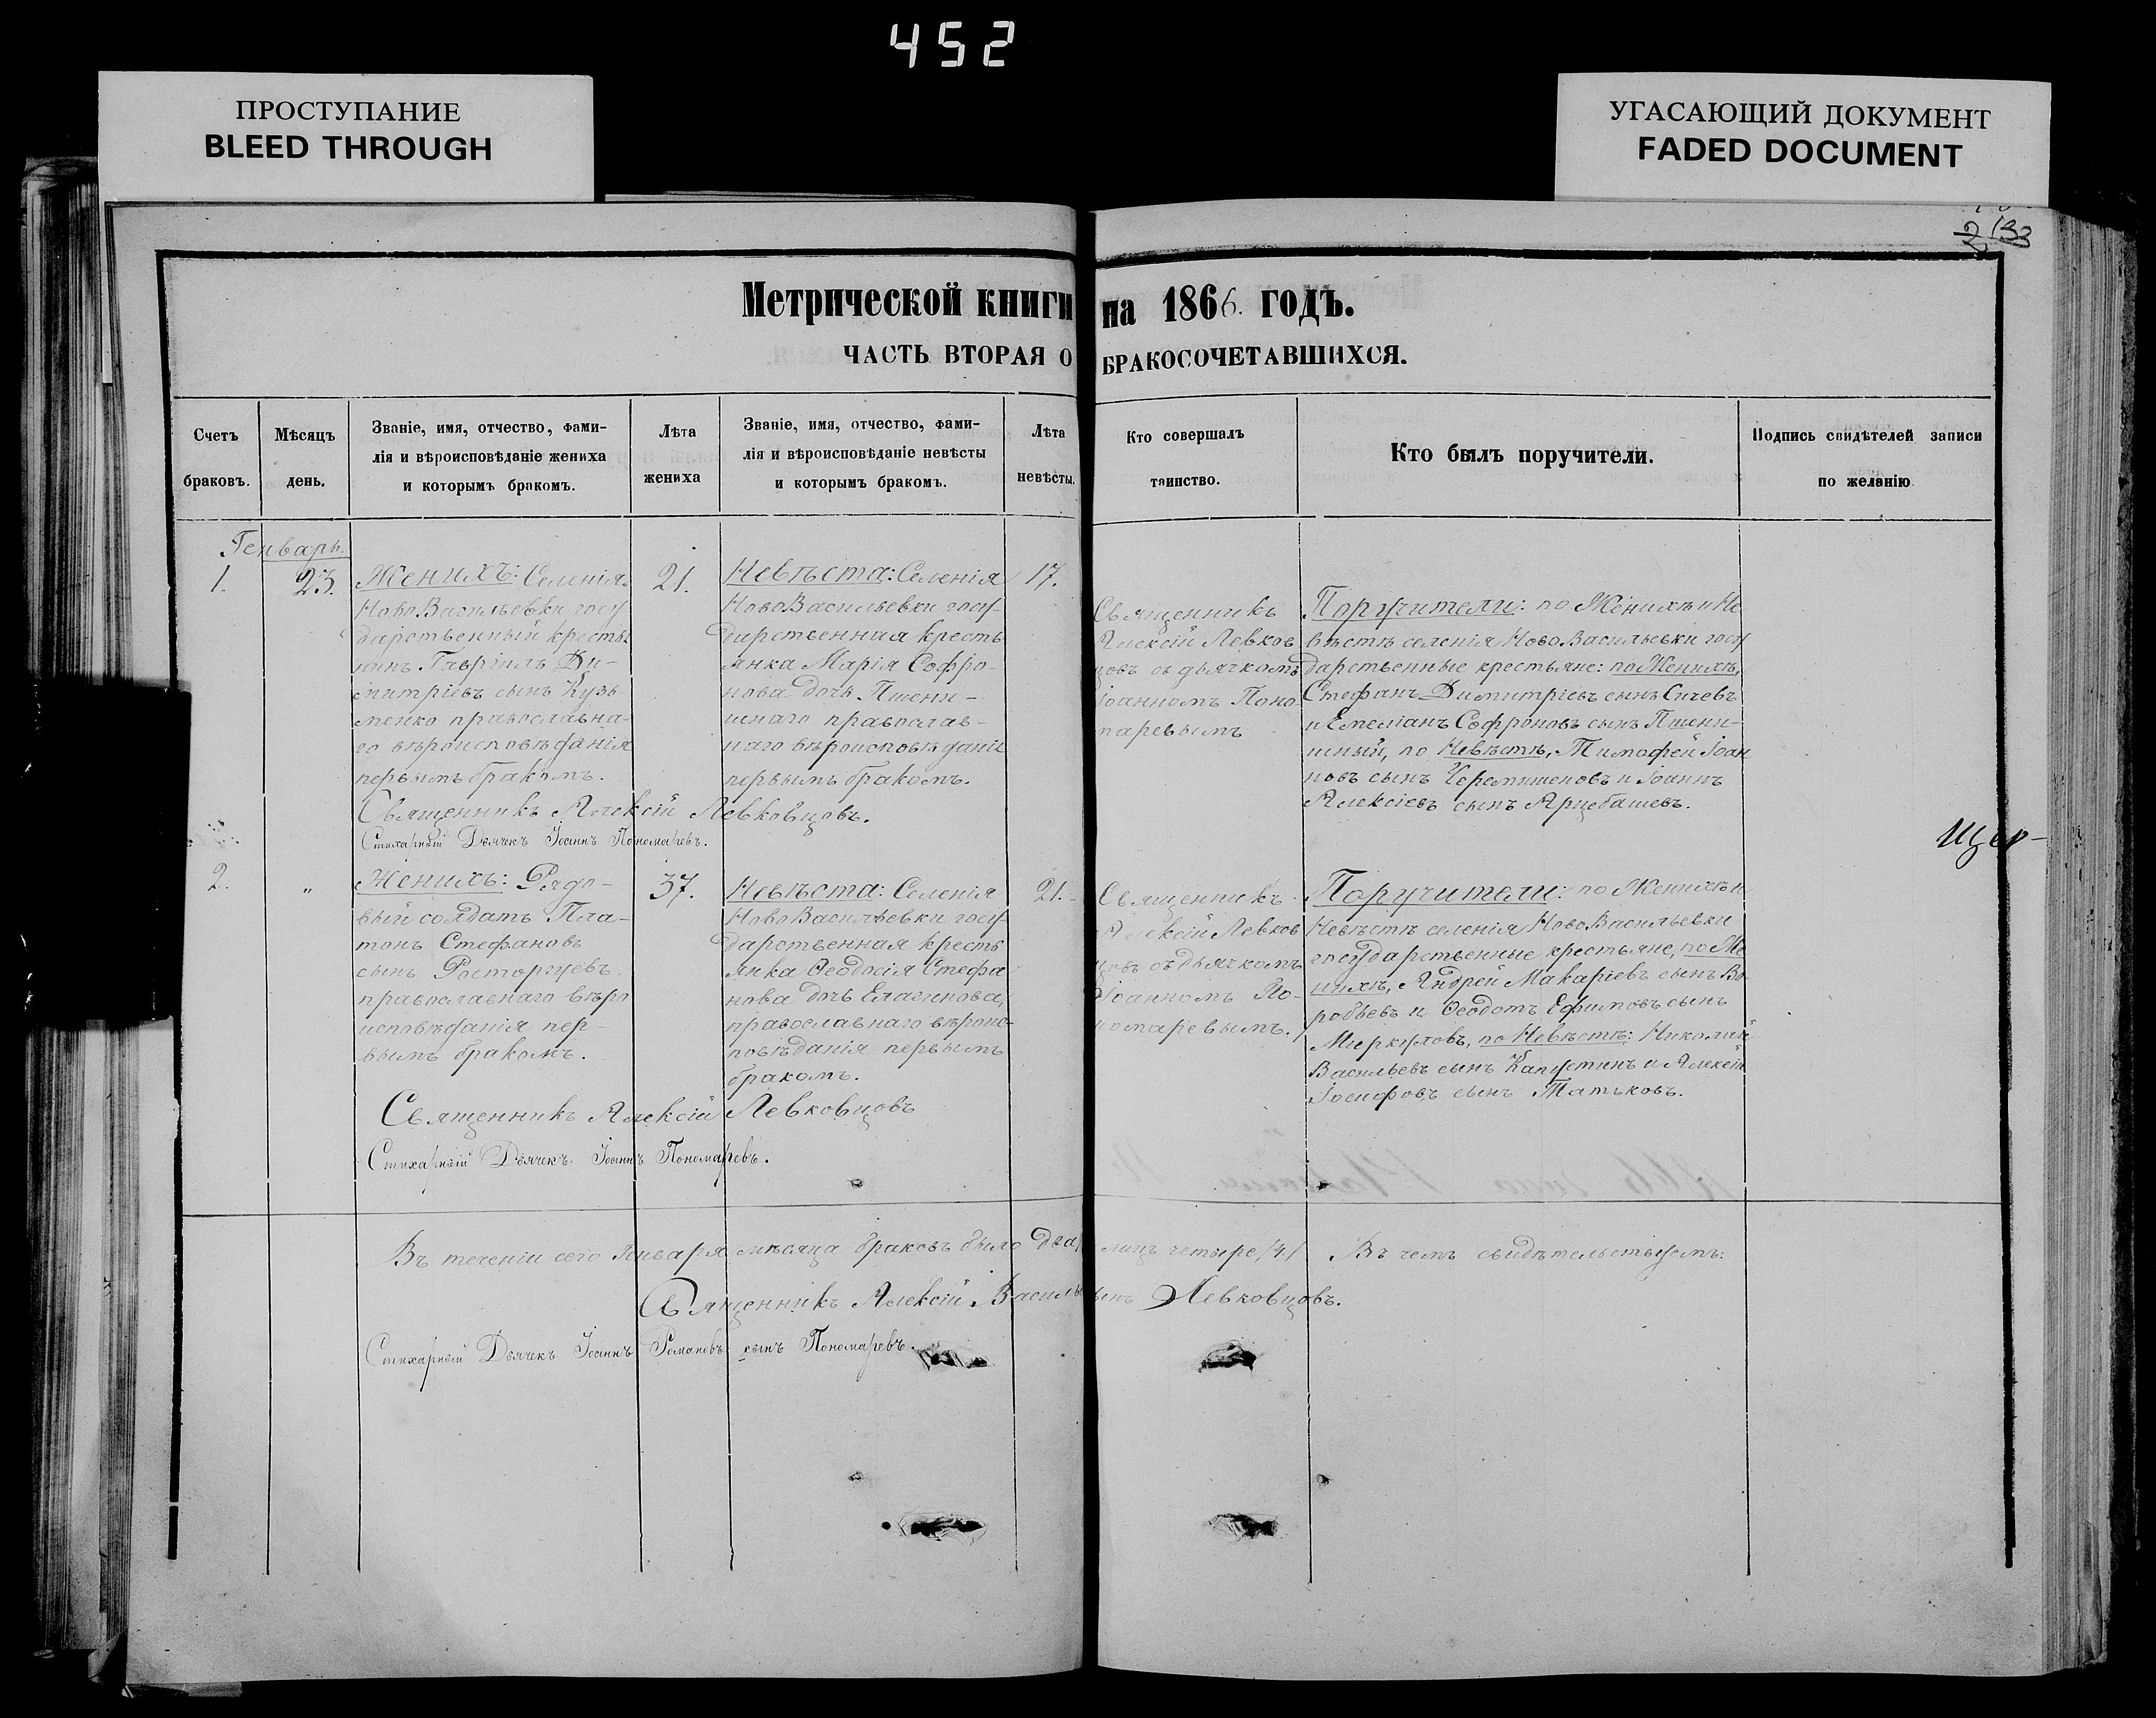 452
ПРОСТУПАНИЕ
BLEED THROUGH
УГАСАЮЩИЙ ДОКУМЕНТ
FADED DOCUMENT
133
Метрической книги на 1866. годъ.
ЧАСТЬ ВТОРАЯ О БРАКОСОЧЕТАВШИХСЯ.
Счетъ
браковъ.
Мѣсяцъ
день.
Званіе, имя, отчество, фами-
лія и вѣроисповѣданіе жениха
и которымъ бракомъ.
Лѣта
жениха
Званіе, имя, отчество, фами-
лія и вѣроисповѣданіе невѣсты
и которымъ бракомъ.
Лѣта
невѣсты.
Кто совершалъ
таинство.
Кто былъ поручители.
Подпись свидѣтелей записи
по желанію
Генварь.
1.
23.
Женихъ: Селенія
НовоВасильевки госу
дарственный крестья
нинъ Гавріилъ Ди-
митріевъ сынъ Кузь
менко православна-
го вѣроисповѣданія
первымъ бракомъ.
21.
Невѣста: Селенія
НовоВасильевки госу-
дарственная кресть
янка Марія Софро-
нова дочь Пшени-
шнаго православ-
наго вѣроисповѣданія
первымъ бракомъ.
17.
Священникъ
Алексій Левков
цовъ съ дьячкомъ
Іоанномъ Поно
маревымъ
Поручители: по Женихѣ и Не
вѣстѣ селенія НовоВасильевки госу
дарственные крестьяне: по Женихѣ,
Стефанъ Димитріевъ сынъ Сичевъ
и Емеліанъ Софроновъ сынъ Пшени-
шный, по Невѣстѣ, Тимофей Іоан
новъ сынъ Черемишеновъ и Іоаннъ
Алексіевъ сынъ Арцебашевъ.
Священникъ Алексій Левковцовъ.
Стихарный Дьячекъ Іоаннъ Пономаревъ.
2.
"
Женихъ: Рядо-
вый солдатъ Пла-
тонъ Стефановъ
сынъ Расторгуевъ
православнаго вѣро
исповѣданія пер-
вымъ бракомъ.
37.
Невѣста: Селенія
НовоВасильевки госу
дарственная кресть
янка Ѳеодосія Стефа
нова дочь Елагинова,
православнаго вѣроис-
повѣданія первымъ
бракомъ.
21.
Священникъ
Алексій Левков
цовъ съ дьячкомъ
Іоанномъ По-
номаревымъ.
Поручители: по Женихѣ и
Невѣстѣ селенія НовоВасильевки
государственные крестьяне, по Же
нихѣ, Андрей Макаріевъ сынъ Во
робьевъ и Ѳеодотъ Ефимовъ сынъ
Меркуловъ, по Невѣстѣ: Николай
Васильевъ сынъ Капустинъ и Алексій
Іосифовъ сынъ Татьковъ.
Священникъ Алексій Левковцовъ
Стихарный Дьячекъ Іоаннъ Пономаревъ.
Въ теченіи сего Генваря мѣсяца браковъ было два, лицъ четыре /4./ Въ чемъ свидѣтельствуемъ:
Священникъ Алексій Василь сынъ Левковцовъ.
Стихарный Дьячекъ Іоаннъ Романовъ сынъ Пономаревъ.